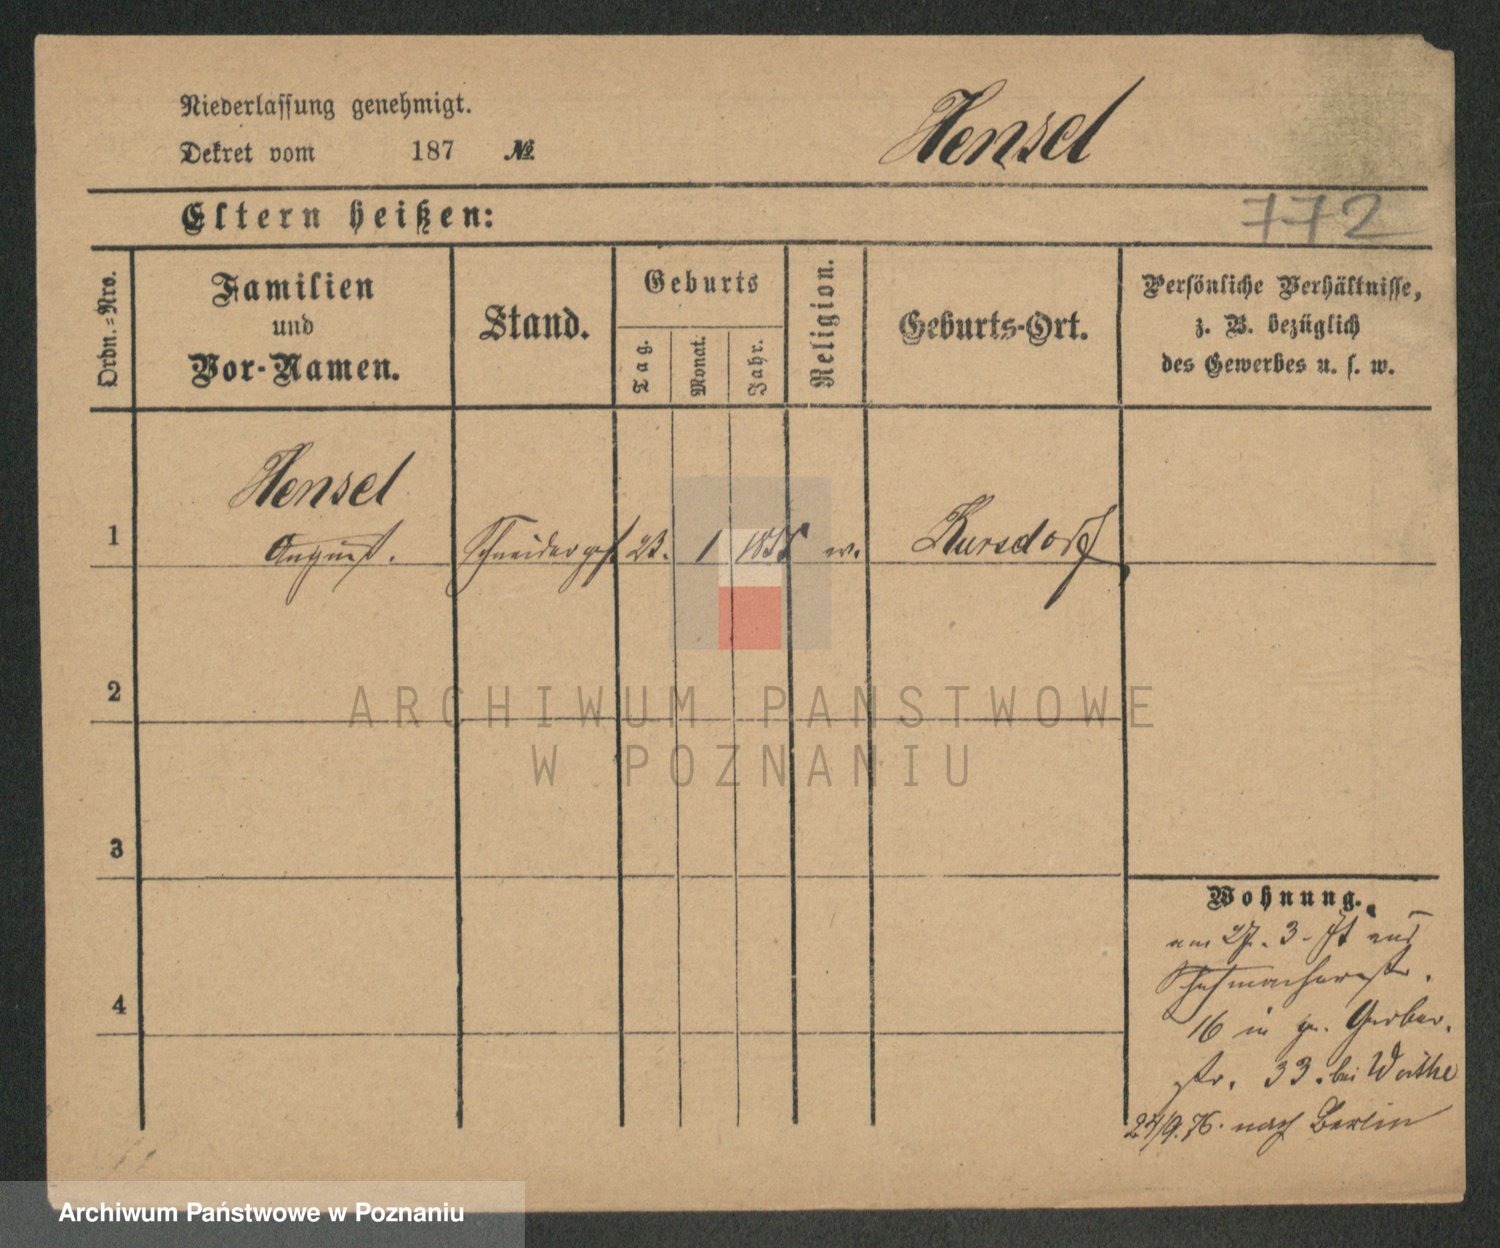 Niederlassung genehmigt.
Dekret vom 187 №
Hensel
Eltern heißen:
772
Ordn.-Nro.
Familien
und
Vor-Namen.
Stand.
Geburts
Tag.
Monat.
Jahr.
Religion.
Geburts-Ort.
Persönliche Verhältnisse,
z. B. bezüglich
des Gewerbes u. s. w.
Hensel
1 August. Schneiderges. 23. 1 1855 ev. Kursdorf
2
3
4
Wohnung.
am 27. 3. aus
Schuhmacherstr.
16 in gr. Gerber.
str. 33. bei Woithe
24/9.76. nach Berlin
ARCHIWUM PAŃSTWOWE
W POZNANIU
Archiwum Państwowe w Poznaniu